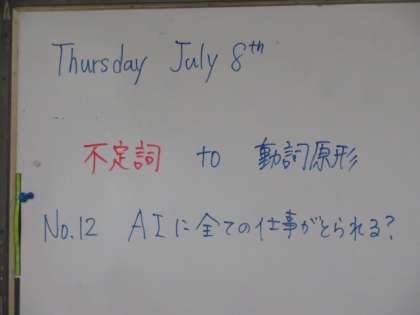 Thursday July 8th
不定詞 to 動詞原形
No.12 AIに全ての仕事がとられる?